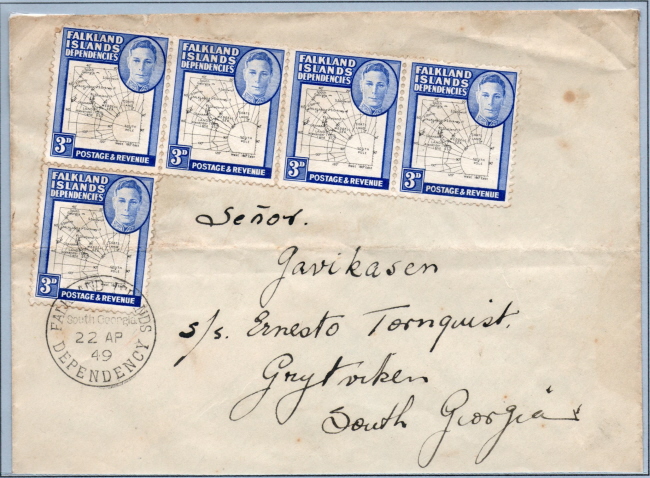 FALKLAND
ISLANDS
DEPENDENCIES
3D
POSTAGE & REVENUE
FALKLAND
ISLANDS
DEPENDENCIES
3D
POSTAGE & REVENUE
FALKLAND
ISLANDS
DEPENDENCIES
3D
POSTAGE & REVENUE
FALKLAND
ISLANDS
DEPENDENCIES
3D
POSTAGE & REVENUE
FALKLAND
ISLANDS
DEPENDENCIES
3D
POSTAGE & REVENUE
South Georgia.
22 AP
49
DEPENDENCY
Señor.
Gavikasen
s/s. Ernesto Tornquist.
Grytviken
South Georgia